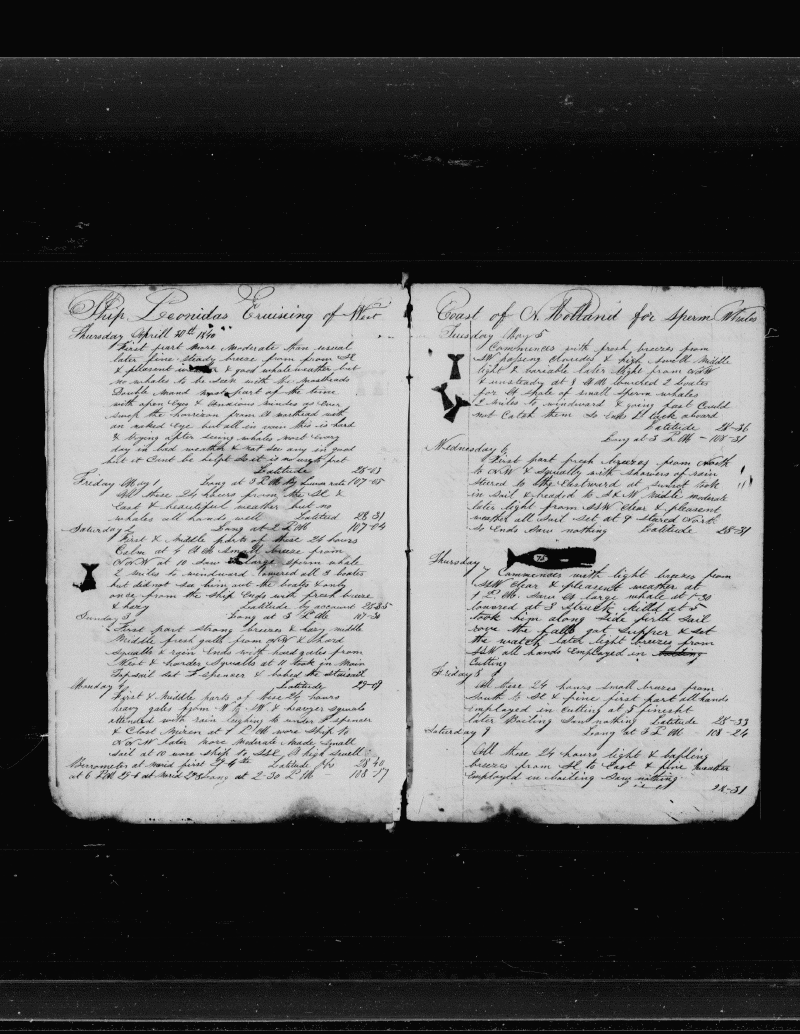 Ship Leonidas Cruising of West
Thursday Aprill 30th 1840
First part more moderate than usual
later fine steady breeze from from SE
& pleasent & good whale weather but
no whales to be seen with the Mastheads
Double maned most part of the time
with open Eyes & Anxious mindes as Ever
the horrison from at masthead with
an naked Eye but all in vain this is hard
& trying after seeing whales most Every
day in bad weather & not see any in good
but it Cant be helpt so it is no use to fret
Latitude 28-03
Friday May 1 Long at 3 P.M by Lunar rate 107-05
All these 24 hours from the SE &
East & beautiful weather but no
whales all hands well Latitud 28 31
Saturday 2 Long at 2 P.M 107-04
First & Middle parts of these 24 hours
Calm at 4 A.M small breeze from
NNW at 10 saw a large sperm whale
2 miles to windward lowered all 3 boates
but did not see him out the boates & only
once from the ship Ends with fresh breeze
& hazy Latitude by account 28-35
Sunday 3 Long at 3 P.M 107-30
First part strong breezes & hazy middle
Middle fresh gales from NW &
squalls & rain Ends with hard gales from
West & harder Squalls at 11 took in Main
Topsail set F spencer & the staisail
Monday 4 Latitude 29-09
First & Middle parts of these 24 hours
heavy gales from W by W & heavy squals
attended with rain under F spencer
& Close Mizen at 1 P.M wore ship to
NNW later more moderate made small
sail at 10 wore ship to SSE A high swell
Barrometer at Merid first Latitude 28 40
at 6 P.M at Merid Long at 2-30 P.M - 108-17
Coast of N Holland for Sperm Whales
Tuesday May 5
Commences with fresh breezes from
SW passing clouds & high swell Middle
light & variable later light from NNW
& unsteady at 8 A.M lowered 2 boates
for A shole of small sperm whales
2 miles to windward & going fast Could
not Catch them So Ends back aboard
Latitude 28-36
Long at 3 P.M - 108-31
Wednesday 6
First part fresh breezes from North
to NW & squally with showers of rain
stered to the Eastward at sunset took
in sail & headed to Middle moderate
later light from SSW Clear & pleasent
weather all sail set at 9 stared North
So Ends Saw nothing Latitude 28-31
75
Thursday 7
Commences with light breezes from
SSW Clear & pleasent weather at
1 P.M. saw A large whale at 1-30
lowered at 3 struck killd at 5
took him along side furld sail
rove the falls got supper & set
the watch later light breezes from
SSW all hands Employed in
Cutting
Friday 8
All these 24 hours small breezes from
South to SE & fine first part all hands
employed in Cutting at 5 finesht
later Boiling Saw nothing Latitude 28-33
Saturday 9 Long at 3 P.M 108-24
All these 24 hours light &
breezes from SE to East & fine weather
Employed in boiling Saw nothing
28-31